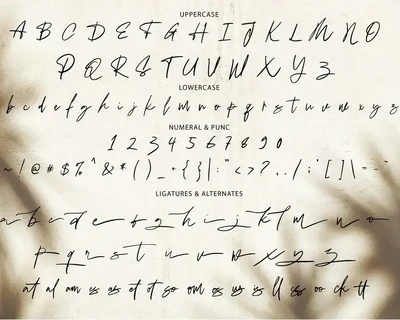 UPPERCASE
A B C D E F G H I J K L M N O
P Q R S T U V W X Y Z
LOWERCASE
b c d e f g h i j k l m n o p q r s t u v w x y z
NUMERAL & PUNC
1 2 3 4 5 6 7 8 9 0
~ ! @ # $ % ^ & * ( ) _ + { } | : " < > ? . . / ; ' [ ] \ = - `
LIGATURES & ALTERNATES
a b c d e f g h i j k l m n o
p q r s t u v w x y z
at al am as es et ot so om os us is ll ss oo ck tt